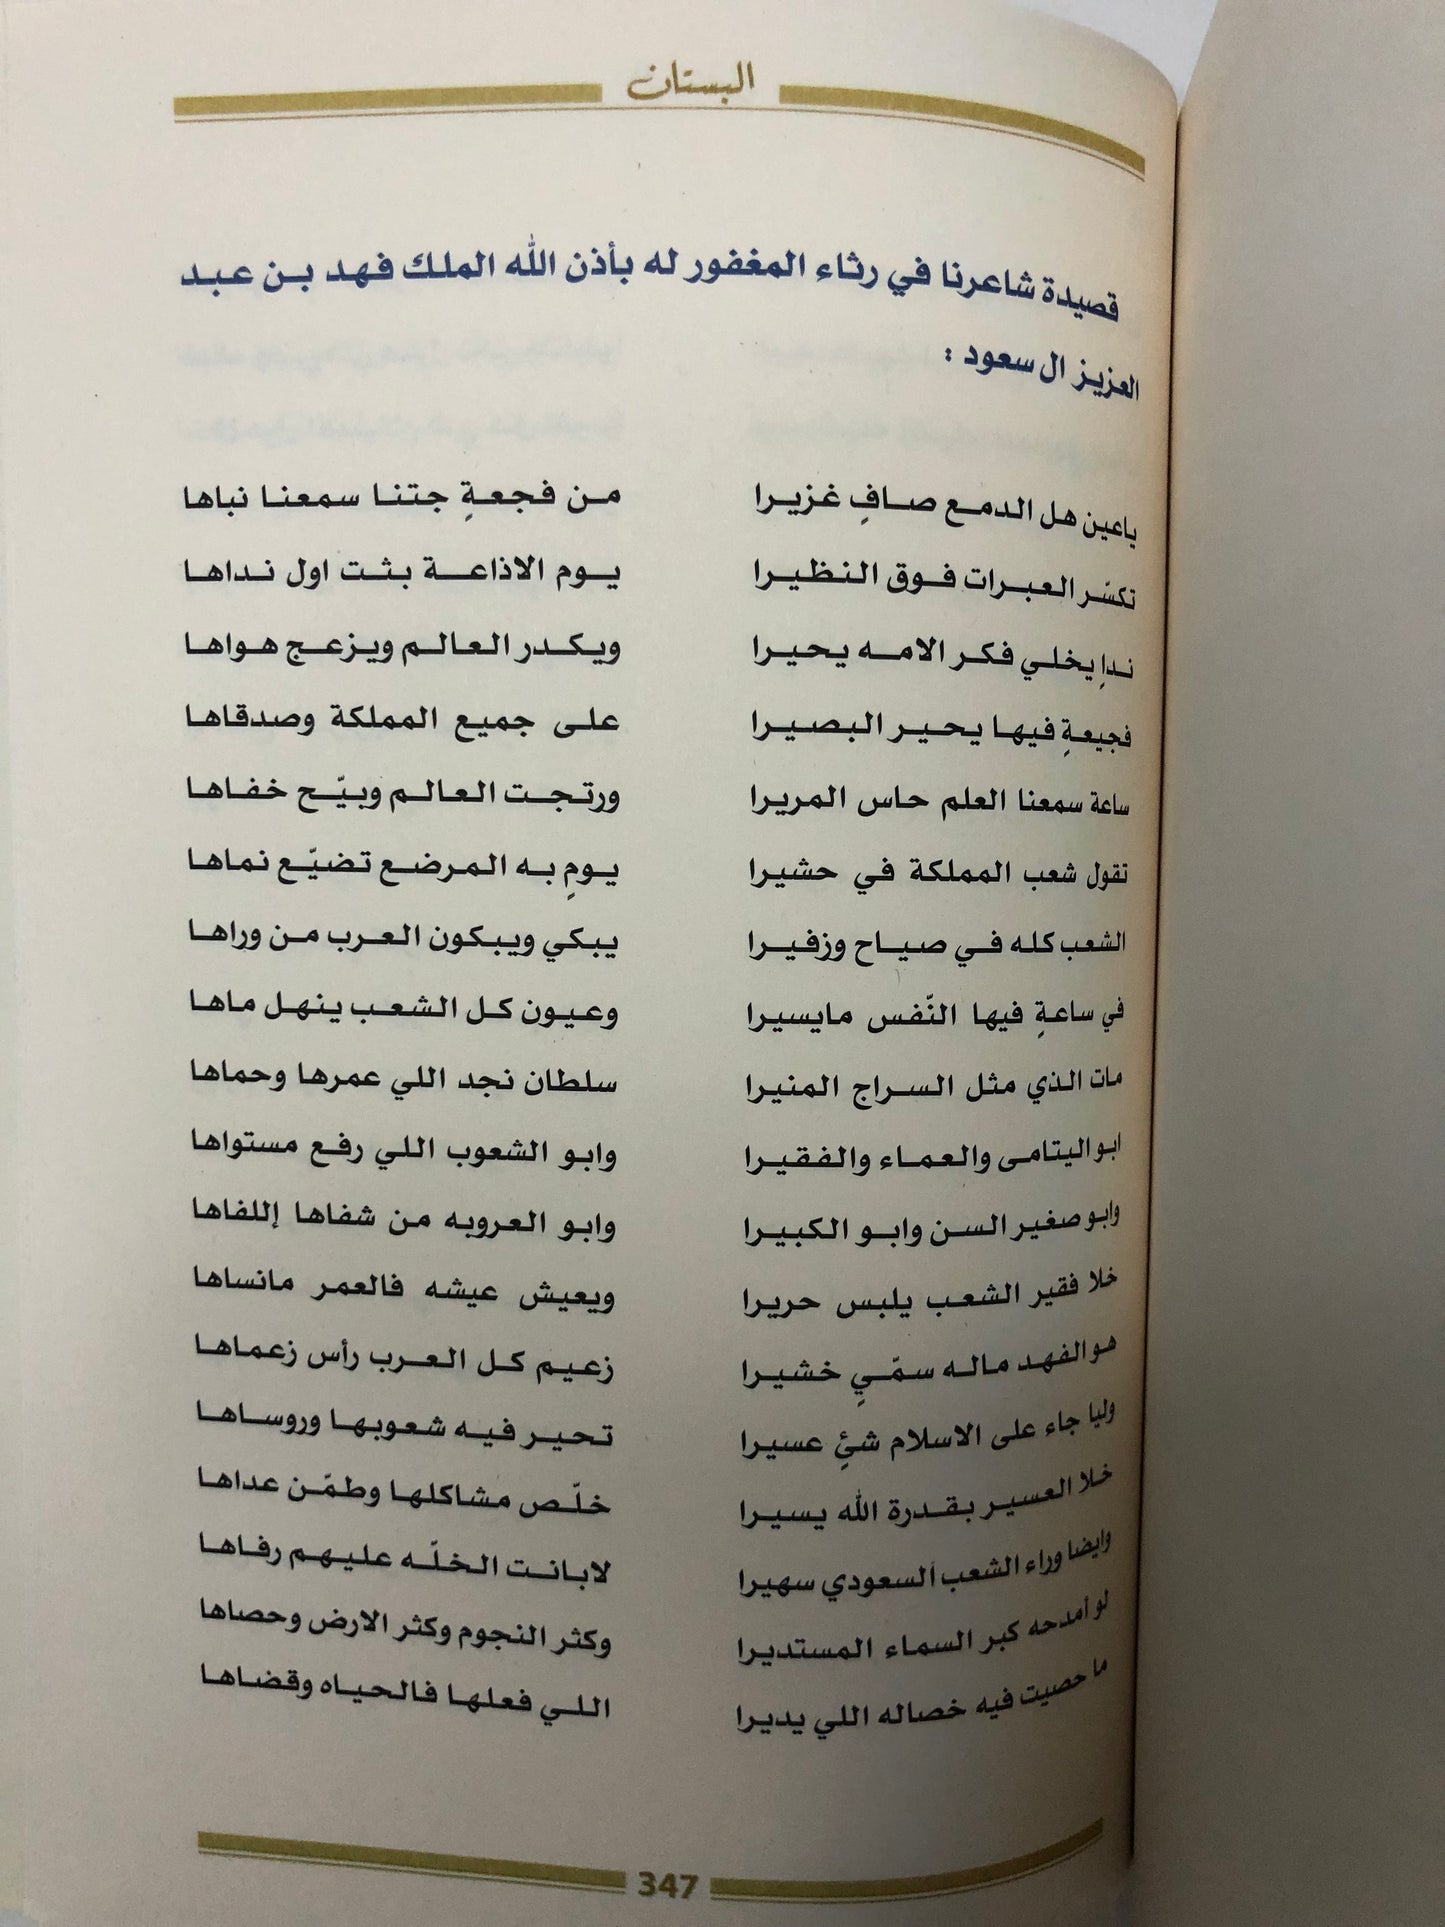 البستان
قصيدة شاعرنا في رثاء المغفور له بأذن الله الملك فهد بن عبد
العزيز ال سعود :
ياعين هل الدمع صافٍ غزيرا من فجعةٍ جتنا سمعنا نباها
تكسّر العبرات فوق النظيرا يوم الاذاعة بثت اول نداها
نداٍ يخلي فكر الامه يحيرا ويكدر العالم ويزعج هواها
فجيعةٍ فيها يحير البصيرا على جميع المملكة وصدقاها
ساعة سمعنا العلم حاس المريرا ورتجت العالم وبيّح خفاها
تقول شعب المملكة في حشيرا يومٍ به المرضع تضيّع نماها
الشعب كله في صياح وزفيرا يبكي ويبكون العرب من وراها
في ساعةٍ فيها النّفس مايسيرا وعيون كل الشعب ينهل ماها
مات الذي مثل السراج المنيرا سلطان نجد اللي عمرها وحماها
ابو اليتامى والعماء والفقيرا وابو الشعوب اللي رفع مستواها
وابو صغير السن وابو الكبيرا وابو العروبه من شفاها إللفاها
خلا فقير الشعب يلبس حريرا ويعيش عيشه فالعمر مانساها
هو الفهد ماله سمّيٍ خشيرا زعيم كل العرب رأس زعماها
وليا جاء على الاسلام شئٍ عسيرا تحير فيه شعوبها وروساها
خلا العسير بقدرة الله يسيرا خلّص مشاكلها وطمّن عداها
وايضا وراء الشعب ألسعودي سهيرا لابانت الخلّه عليهم رفاها
لو أمدحه كبر السماء المستديرا وكثر النجوم وكثر الارض وحصاها
ما حصيت فيه خصاله اللي يديرا اللي فعلها فالحياه وقضاها
347